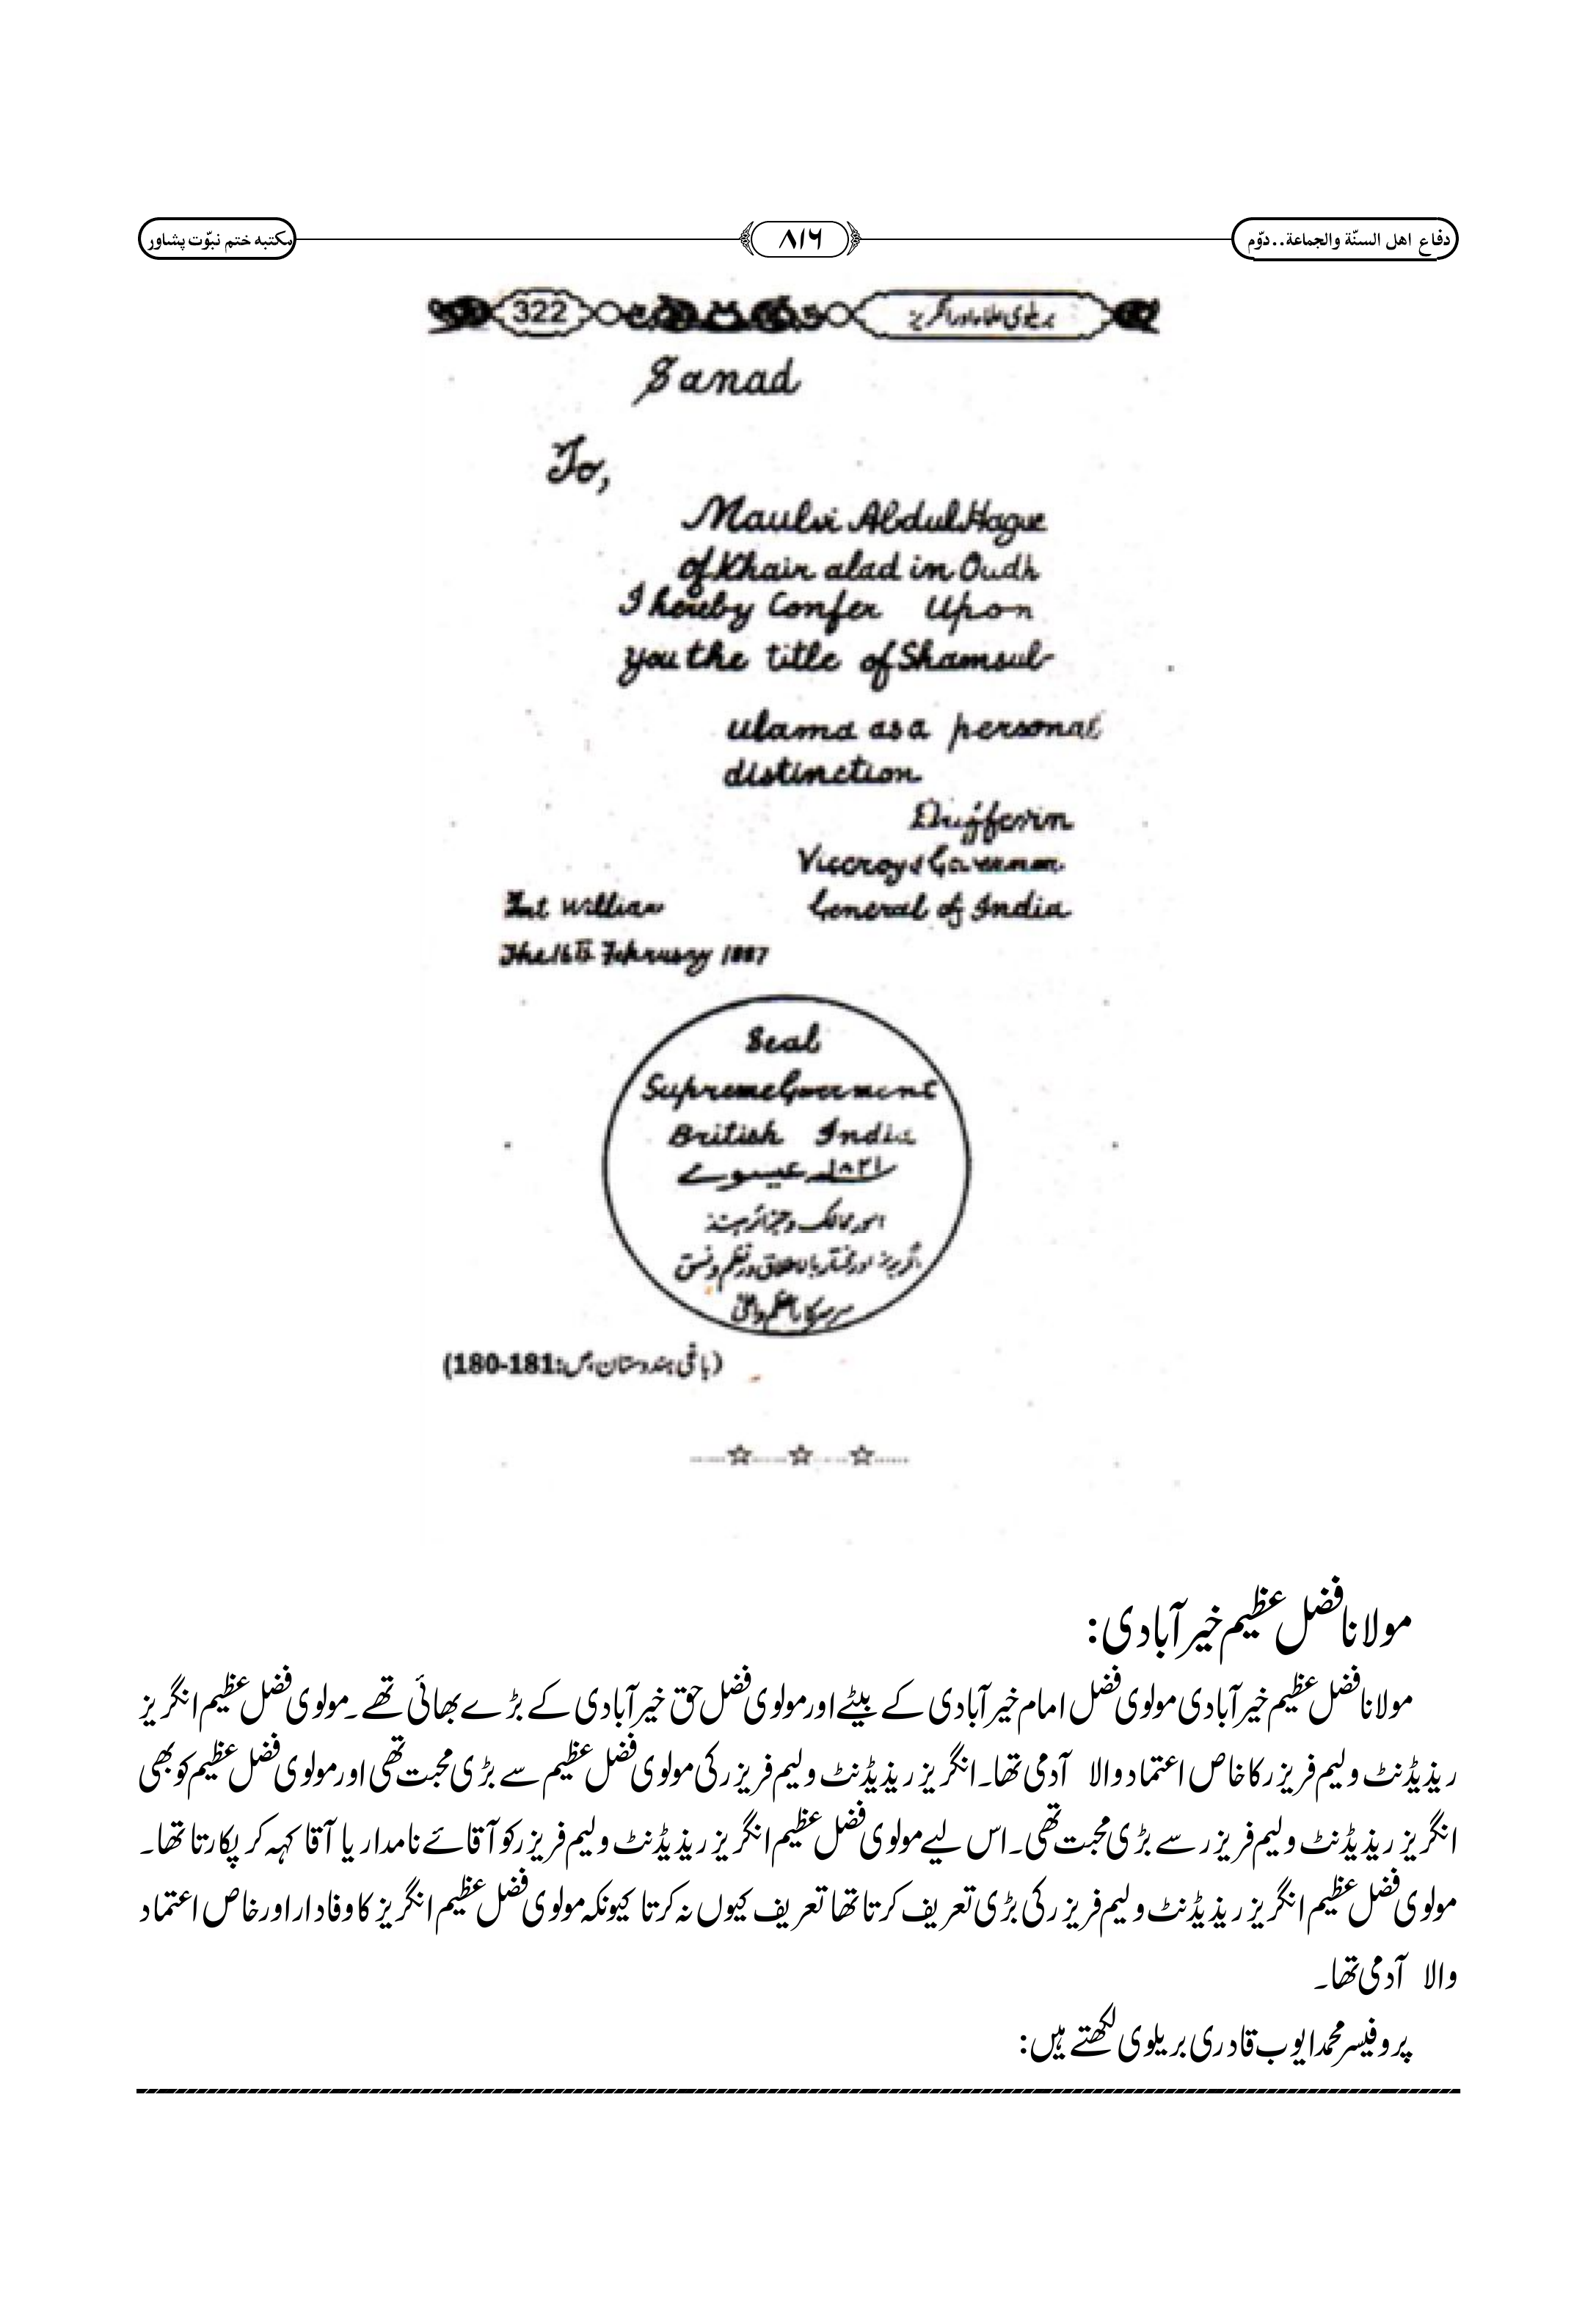 دفاع اهل السنّة والجماعة..دوّم
۸۱۶
مکتبه ختم نبوّت پشاور
بریلوی علماء اور انگریز
322
Sanad
To,
Maulvi Abdul Hague
of Khair alad in Oudh
I hereby Confer Upon
you the title of Shamsul-
ulama as a personal
distinction
Viceroy & Governor
General of India
Fort William
The 16th February 1887
Seal
Supreme Goverment
British India
عیسوے
(باغی ہندوستان،ص:180-181)
مولانا فضل عظیم خیر آبادی:
مولانا فضل عظیم خیر آبادی مولوی فضل امام خیر آبادی کے بیٹے اور مولوی فضل حق خیر آبادی کے بڑے بھائی تھے۔ مولوی فضل عظیم انگریز
ریذیڈنٹ ولیم فریزر کا خاص اعتماد والا آدمی تھا۔ انگریز ریذیڈنٹ ولیم فریزر کی مولوی فضل عظیم سے بڑی محبت تھی اور مولوی فضل عظیم کو بھی
انگریز ریذیڈنٹ ولیم فریزر سے بڑی محبت تھی۔ اس لیے مولوی فضل عظیم انگریز ریذیڈنٹ ولیم فریزر کو آقائے نامدار یا آقا کہہ کر پکارتا تھا۔
مولوی فضل عظیم انگریز ریذیڈنٹ ولیم فریزر کی بڑی تعریف کرتا تھا تعریف کیوں نہ کرتا کیونکہ مولوی فضل عظیم انگریز کا وفادار اور خاص اعتماد
والا آدمی تھا۔
پروفیسر محمد ایوب قادری بریلوی لکھتے ہیں: